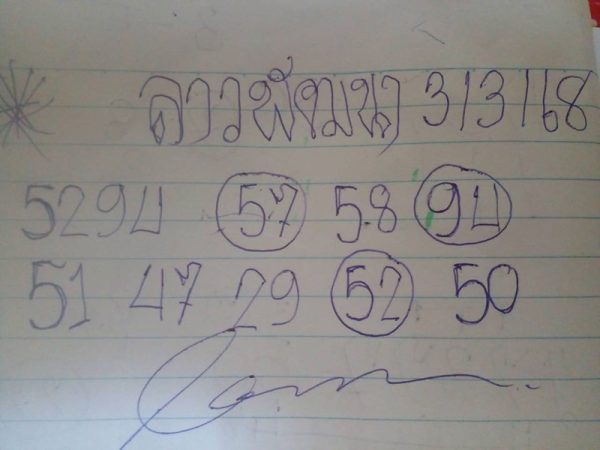 ลาวพัฒนา 3/3/68
5294 57 58 94
51 47 29 52 50